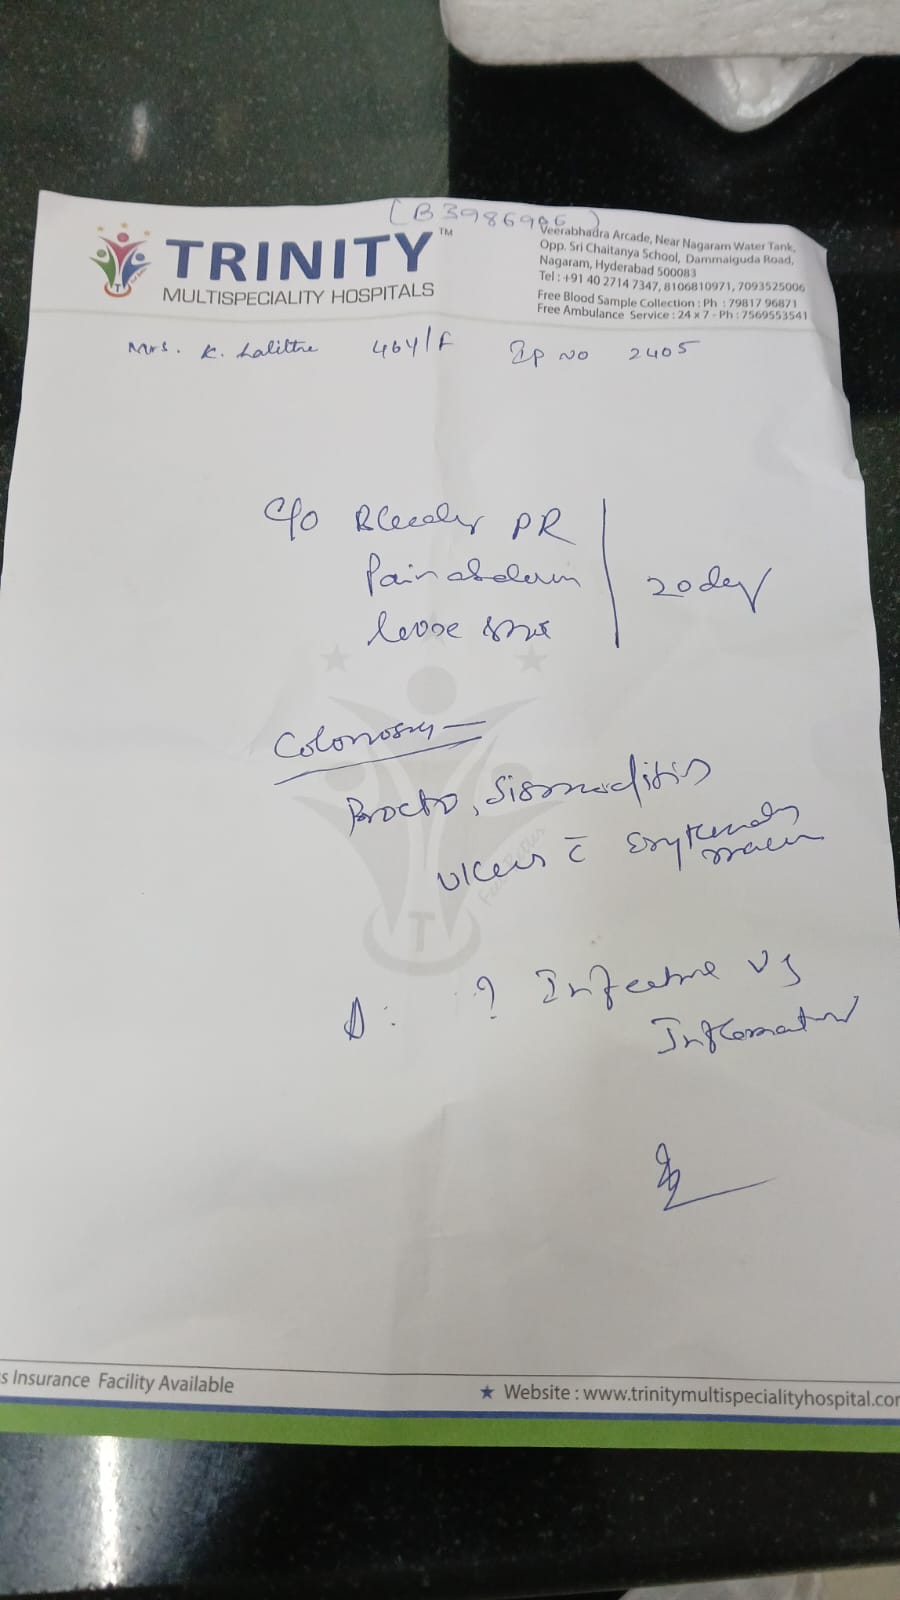 (B3986906)
TRINITY™
MULTISPECIALITY HOSPITALS
Veerabhadra Arcade, Near Nagaram Water Tank,
Opp. Sri Chaitanya School, Dammaiguda Road,
Nagaram, Hyderabad 500083
Tel : +91 40 2714 7347, 8106810971, 7093525006
Free Blood Sample Collection : Ph : 79817 96871
Free Ambulance Service : 24 x 7 - Ph : 7569553541
Mrs. K. Lalitha 46y/F Ip No 2405
C/o Bleeding PR
Pain abdomen 20 day
loose
Colonoscopy -
Procto, Sigmoiditis
ulcers c̄ Erythematous
D: ? Infective Vs
Inflammatory
T
s Insurance Facility Available
★ Website : www.trinitymultispecialityhospital.com